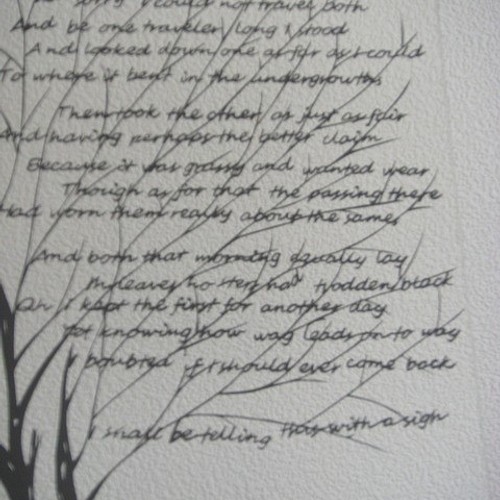 sorry I could not travel both
And be one traveler long I stood
And looked down one as far as I could
To where it bent in the undergrowth
Then took the other as just as fair
And having perhaps the better claim
Because it was grassy and wanted wear
Though as for that the passing there
Had worn them really about the same
And both that morning equally lay
In leaves no step had trodden black
Oh I kept the first for another day
Yet knowing how way leads on to way
I doubted if I should ever come back
I shall be telling this with a sigh